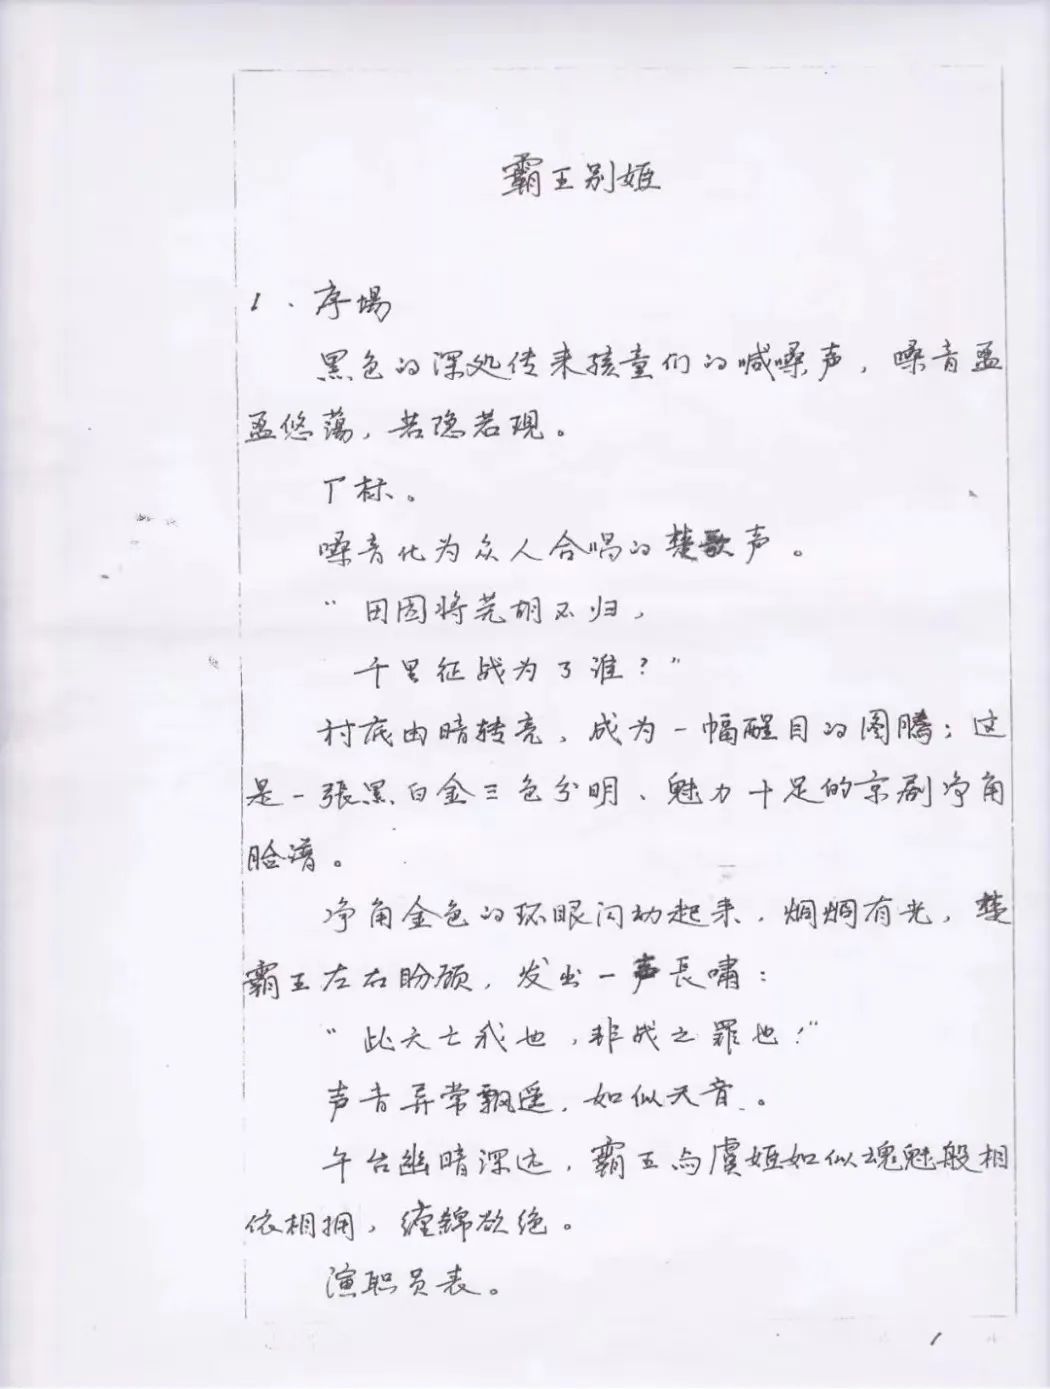 霸王别姬
1. 序場
黑色的深处传来孩童们的喊嗓声，嗓音孟
孟悠蕩，若隐若现。
厂标。
嗓音化为众人合唱的楚歌声。
“田园将芜胡不归，
千里征战为了谁？”
衬底由暗转亮，成为一幅醒目的图腾；这
是一張黑白金三色分明、魅力十足的京剧净角
脸谱。
净角金色的环眼闪动起来，炯炯有光，楚
霸王左右盼顾，发出一声長啸：
“此天亡我也，非战之罪也！”
声音异常飘遥，如似天音。
午台幽暗深远，霸王与虞姬如似魂魅般相
依相拥，缠錦欲绝。
演职员表。
1